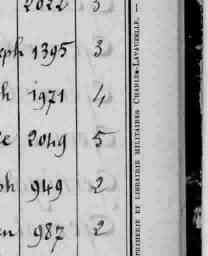 2022 3
eph 1395 3
h 1971 4
e 2049 5
ph 949 2
en 987 2
PRIMERIE ET LIBRAIRIE MILITAIRES CHARLES-LAVAUZELLE.